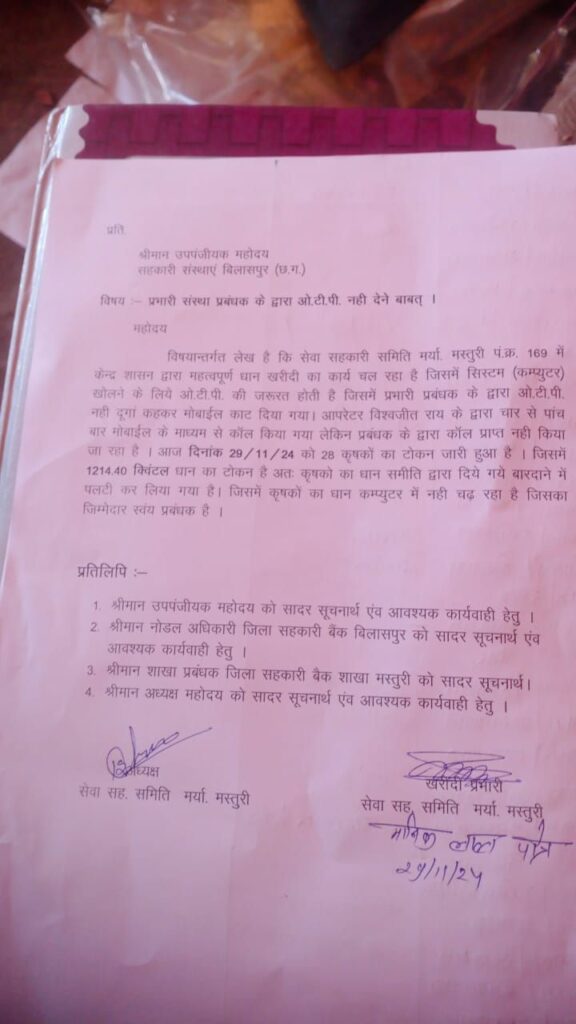 प्रति,
श्रीमान उपपंजीयक महोदय
सहकारी संस्थाएं बिलासपुर (छ.ग.)
विषय :– प्रभारी संस्था प्रबंधक के द्वारा ओ.टी.पी. नही देने बाबत् ।
महोदय
विषयान्तर्गत लेख है कि सेवा सहकारी समिति मर्या. मस्तुरी पं.क्र. 169 में
केन्द शासन द्वारा महत्वपूर्ण धान खरीदी का कार्य चल रहा है जिसमें सिस्टम (कम्प्युटर)
खोलने के लिये ओ.टी.पी. की जरूरत होती है जिसमें प्रभारी प्रबंधक के द्वारा ओ.टी.पी.
नही दूगां कहकर मोबाईल काट दिया गया। आपरेटर विश्वजीत राय के द्वारा चार से पांच
बार मोबाईल के माध्यम से कॉल किया गया लेकिन प्रबंधक के द्वारा कॉल प्राप्त नही किया
जा रहा है । आज दिनांक 29/11/24 को 28 कृषकों का टोकन जारी हुआ है । जिसमें
1214.40 क्विंटल धान का टोकन है अतः कृषको का धान समीति द्वारा दिये गये बारदाने में
पलटी कर लिया गया है। जिसमें कृषकों का धान कम्प्युटर में नही चढ़ रहा है जिसका
जिम्मेदार स्वंय प्रबंधक है ।
प्रतिलिपि :–
1. श्रीमान उपपंजीयक महोदय को सादर सूचनार्थ एंव आवश्यक कार्यवाही हेतु ।
2. श्रीमान नोडल अधिकारी जिला सहकारी बैंक बिलासपुर को सादर सूचनार्थ एंव
आवश्यक कार्यवाही हेतु ।
3. श्रीमान शाखा प्रबंधक जिला सहकारी बैक शाखा मस्तुरी को सादर सूचनार्थ।
4. श्रीमान अध्यक्ष महोदय को सादर सूचनार्थ एंव आवश्यक कार्यवाही हेतु ।
अध्यक्ष
सेवा सह. समिति मर्या. मस्तुरी
खरीदी प्रभारी
सेवा सह. समिति मर्या. मस्तुरी
मानिक लाल
29/11/24